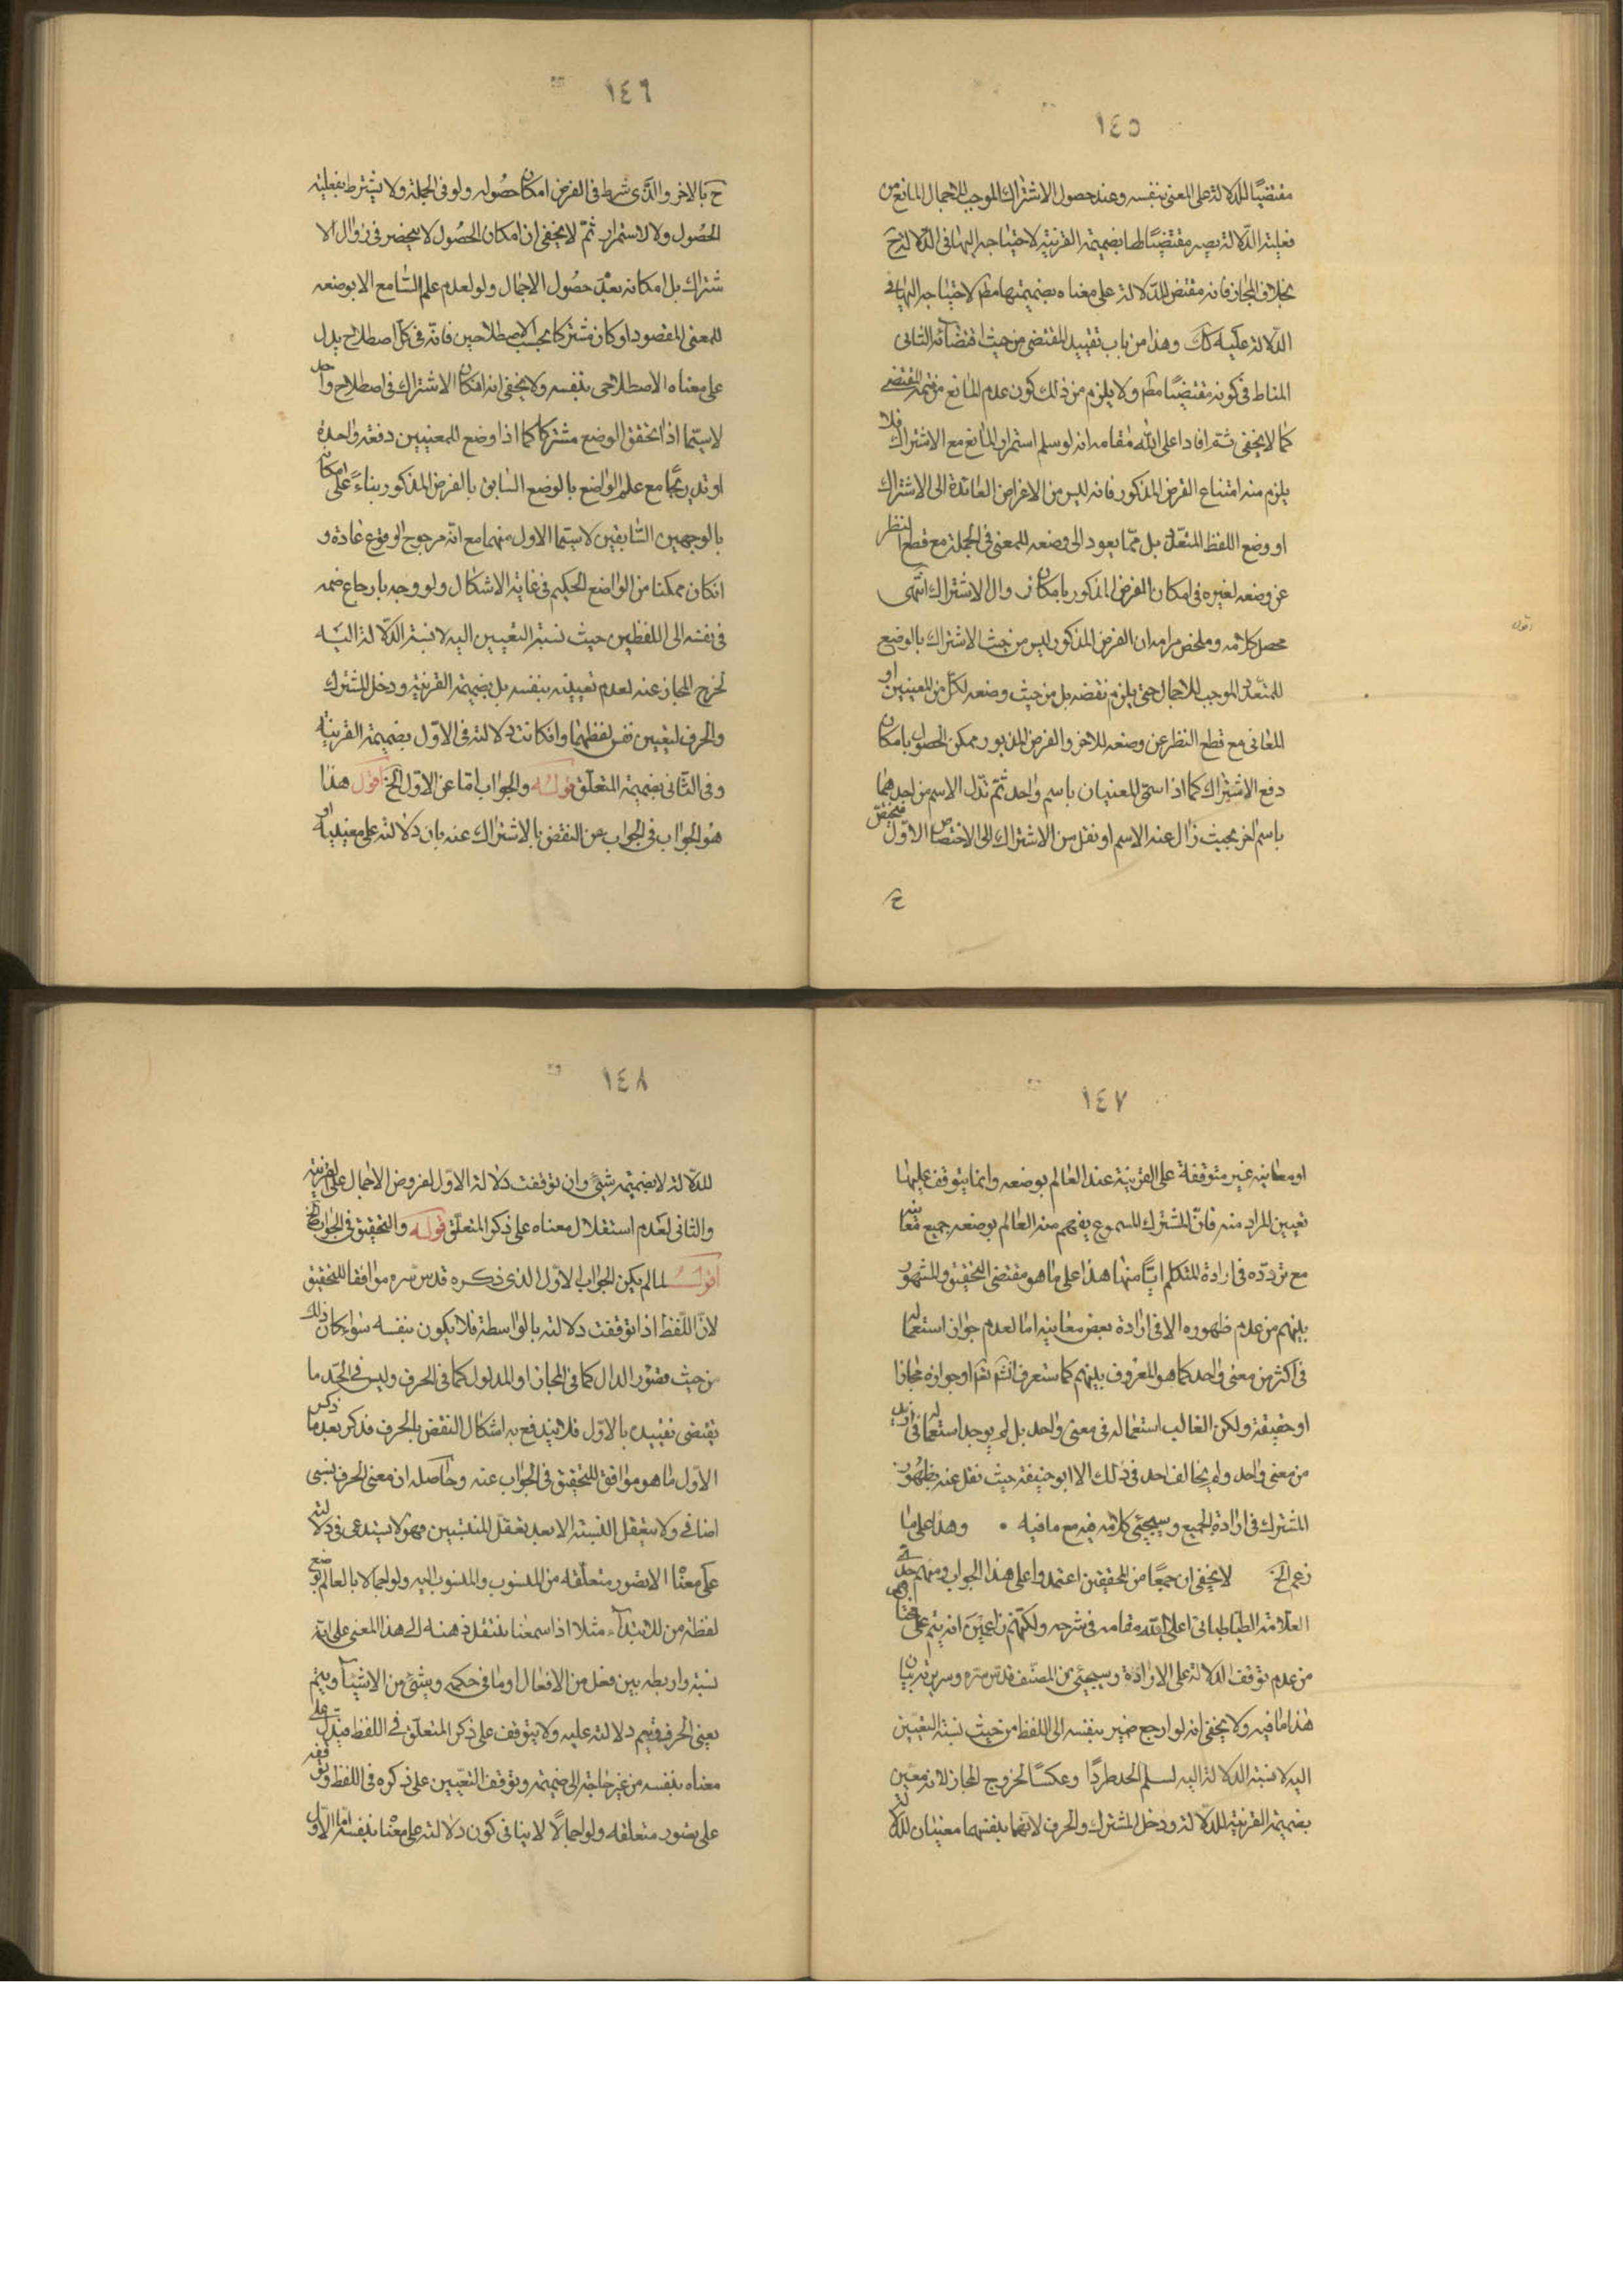 ١٤٥
مقتضيًا للدلالة على المعنى بنفسه وعند حصول الاشتراك الموجب للاجمال المانع من
فعلية الدّلالة يصير مقتضيًا لها بضميمة القرنية لاحتياجه اليها فى الدّلالة ح
بخلاف المجاز فانه مقتض للدّلالة على معناه بضميمتها مطم لاحتياجه اليها فى
الدّلالة عليه كك وهذا من باب تقييد المقتضى من حيث اقتضائه الثانى
المناط فى كونه مقتضيًا مطم ولا يلزم من ذلك كون عدم المانع من تتمة المقتضى
كما لا يخفى ثم افاد اعلى الله مقامه انه لو سلم استمرار المانع مع الاشتراك فلا
يلزم منه امتناع الفرض المذكور فانه ليس من الاغراض العائدة الى الاشتراك
او وضع اللفظ المتعدّد بل ممّا يعود الى وضعه للمعنى فى الجملة مع قطع النظر
عن وضعه لغيره فى امكان الفرض المذكور بامكان زوال الاشتراك انتهى
محصل كلامه وملخص مرامه ان الفرض المذكور ليس من حيث الاشتراك بالوضع
للمتعدّد الموجب للاجمال حتى يلزم نقضه بل من حيث وضعه لكل من المعنيين او
المعانى مع قطع النظر عن وضعه للاخر والفرض المزبور ممكن الحصول بامكان
دفع الاشتراك كما اذا سمّى المعنيان باسم واحد ثم بدّل الاسم من احدهما
باسم اخر بحيث زال عنه الاسم او نقل من الاشتراك الى الاختصاص الاوّل فيتحقق
ح
اقول
١٤٦
ح بالاخر والذّى شرط فى الفرض امكان حصوله ولو فى الجملة ولا يشترط بفعلية
الحصُول ولا لاستمرار ثمّ لا يخفى ان امكان الحصُول لا ينحصر فى زوال الا
شتراك بل امكانه بعدَ حصُول الاجمال ولو لعدم علم السّامع الا بوضعه
للمعنى المقصود او كان مشتركا بحسب الاصطلاحين فانّه فى كلّ اصطلاح يدل
على معناه الاصطلاحى بنفسه ولا يخفى انه امكان الاشتراك فى اصطلاح واحد
لا سيّما اذا تحقق الوضع مشتركا كما اذا وضع للمعنيين دفعة واحدة
او تدريجًا مع علم الواضع بالوضع السابق بالفرض المذكور بناءً على امكان
بالوجهين السّابقين لا سيّما الاول منهما مع انّه مرجوح الوقوع عادة و
انكان ممكنا من الواضع الحكيم فى غاية الاشكال ولو وجه بارجاع ضمه
فى نفسه الى اللفظين حيث نسبة التعيين اليه لا نسبة الدّلالة اليه
لخرج المجاز عنه لعدم تعيينه بنفسه بل بضميمة القرنية ودخل المشترك
والحرف لتعيين نفس لفظهما وانكانت دلالته فى الاوّل بضميمة القرنية
وفى الثّانى بضميمة المتعلّق قوله والجواب امّا عن الاوّل الخ اقول هذا
هو الجواب فى الجواب عن النقض بالاشتراك عنه بان دلالته على معنييه او
١٤٧
او معانيه غير متوقفة على القرنية عند العالم بوضعه وانما يتوقف عليها
تعيين المراد منه فانّ المشترك المسموع يفهم منه العالم بوضعه جميع معانيه
مع تردّده فى ارادة المتكلم ايّا منها هذا على ما هو مقتضى التحقيق والمشهور
بينهم من عدم ظهوره الا فى ارادة بعض معانيه اما لعدم جواز استعماله
فى اكثر من معنى واحد كما هو المعروف بينهم كما ستعرف انشم تعم او جوازه مجازا
او حقيقة ولكن الغالب استعماله فى معنى واحد بل لم يوجد استعماله فى ازيد
من معنى واحد ولم يخالف احد فى ذلك الا ابو حنيفة حيث نقل عنه بظهور
المشترك فى ارادة الجميع وسيجئ كلامه فيه مع ما فيه • وهذا على ما
زعم الخ لا يخفى ان جمعًا من المحققين اعتمدوا على هذا الجواب ومنهم جدى
العلامة الطباطبائى اعلى الله مقامه فى شرحه ولكنّهم زاعمين انه يتم على
من عدم توقف الدلالة على الارادة وسيجئ من المصنّف قدّس سره وسريرته بيان
هذا ما فيه ولا يخفى انه لو ارجع ضمير بنفسه الى اللفظ من حيث نسبة التعيين
اليه لا نسبة الدلالة اليه لسلم الحد طردًا وعكسًا لخروج المجاز لانه معين
بضميمة القرنية للدّلالة ودخل المشترك والحرف لانّهما بنفسهما معينان للدلالة
١٤٨
للدّلالة لا بضميمة شئ وان توقفت دلالة الاوّل لفروض الاجمال على القرنية
والثانى لعدم استقلال معناه على ذكر المتعلّق قوله والتحقيق فى الجواب الخ
اقول لما لم يكن الجواب الاوّل الذى ذكره قدس سره موافقا للتحقيق
لانّ اللّفظ اذا توقفت دلالته بالواسطة فلا يكون بنفسه سواء كان ذلك
من حيث قصور الدال كما فى المجاز او المدلول كما فى الحرف وليس فى الحّد ما
يقتضى تقييده بالاوّل فلا يندفع به اشكال النقض بالحرف فذكر بعد ما ذكر
الاوّل ما هو موافق للتحقيق فى الجواب عنه وحاصله ان معنى الحرف نسبى
اضافى ولا يتعقل النسبة الا بعد تعقل المنتسبين فهو لا يستدعى فى دلالته
على معناه الا تصور متعلّقه من المنسوب والمنسوب اليه ولو اجمالا بالعالم بوضع
لفظة من للابتداء مثلا اذا سمعنا ينتقل ذهنه الى هذا المعنى على انّه
نسبة وارابطه بين فعل من الافعال او ما فى حكمه وشئ من الاشياء ويتم
بعنى الحرف فيتم دلالته عليه ولا يتوقف على ذكر المتعلّق فى اللفظ فيدل على
معناه بنفسه من غير حاجة الى ضميمة وتوقف التعّيين على ذكره فى اللفظ وتوقفه
على تصور متعلقه ولو اجمالًا لا ينافى كون دلالته على معناه بنفسه امّا الاوّل